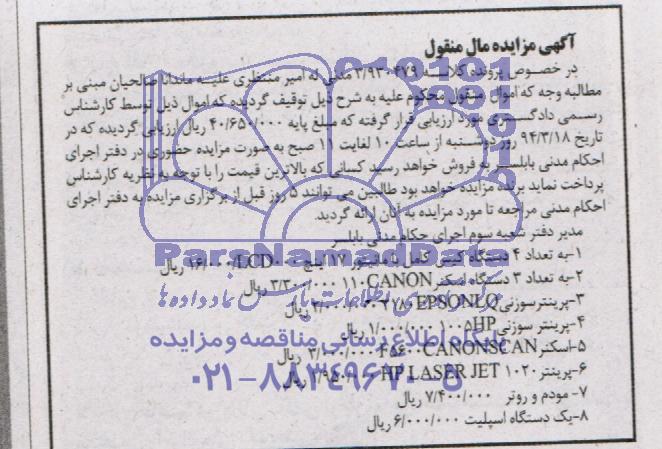 آگهی مزایده مال منقول
در خصوص پرونده کلاسه ۳/۹۳۰۴۷۹ مدنی له امیر منتظری علیه ماندانا صالحیان مبنی بر
مطالبه وجه که اموال منقول محکوم علیه به شرح ذیل توقیف گردیده که اموال ذیل توسط کارشناس
رسمی دادگستری مورد ارزیابی قرار گرفته که مبلغ پایه ۴۰/۶۵۰/۰۰۰ ریال ارزیابی گردیده که در
تاریخ ۹۴/۳/۱۸ روز دوشنبه از ساعت ۱۰ لغایت ۱۱ صبح به صورت مزایده حضوری در دفتر اجرای
احکام مدنی بابلسر به فروش خواهد رسید کسانی که بالاترین قیمت را با توجه به نظریه کارشناس
پرداخت نماید برنده مزایده خواهد بود طالبین می توانند ۵ روز قبل از برگزاری مزایده به دفتر اجرای
احکام مدنی مراجعه تا مورد مزایده به آنان ارائه گردید.
مدیر دفتر شعبه سوم اجرای حکام مدنی بابلسر
۱-به تعداد ۴ دستگاه کیس کامل با مانیتور ۱۷ اینچ LCD ۱۶/۰۰۰/۰۰۰ ریال
۲-به تعداد ۳ دستگاه اسکنر CANON ۱۱۰ ۳/۳۰۰/۰۰۰ ریال
۳-پرینتر سوزنی EPSONLQ ریال
۴-پرینتر سوزنی ۱۰۰۵HP ۱/۰۰۰/۰۰۰ ریال
۵-اسکنر CANONSCAN ۵۶۰۰F ریال
۶-پرینتر ۱۰۲۰ HP LASER JET ریال
۷- مودم و روتر ۷/۴۰۰/۰۰۰ ریال
۸-یک دستگاه اسپلیت ۶/۰۰۰/۰۰۰ ریال
ParsNamadData
پایگاه اطلاع رسانی مناقصه و مزایده
۰۲۱-۸۸۳۴۹۶۷۰-۵